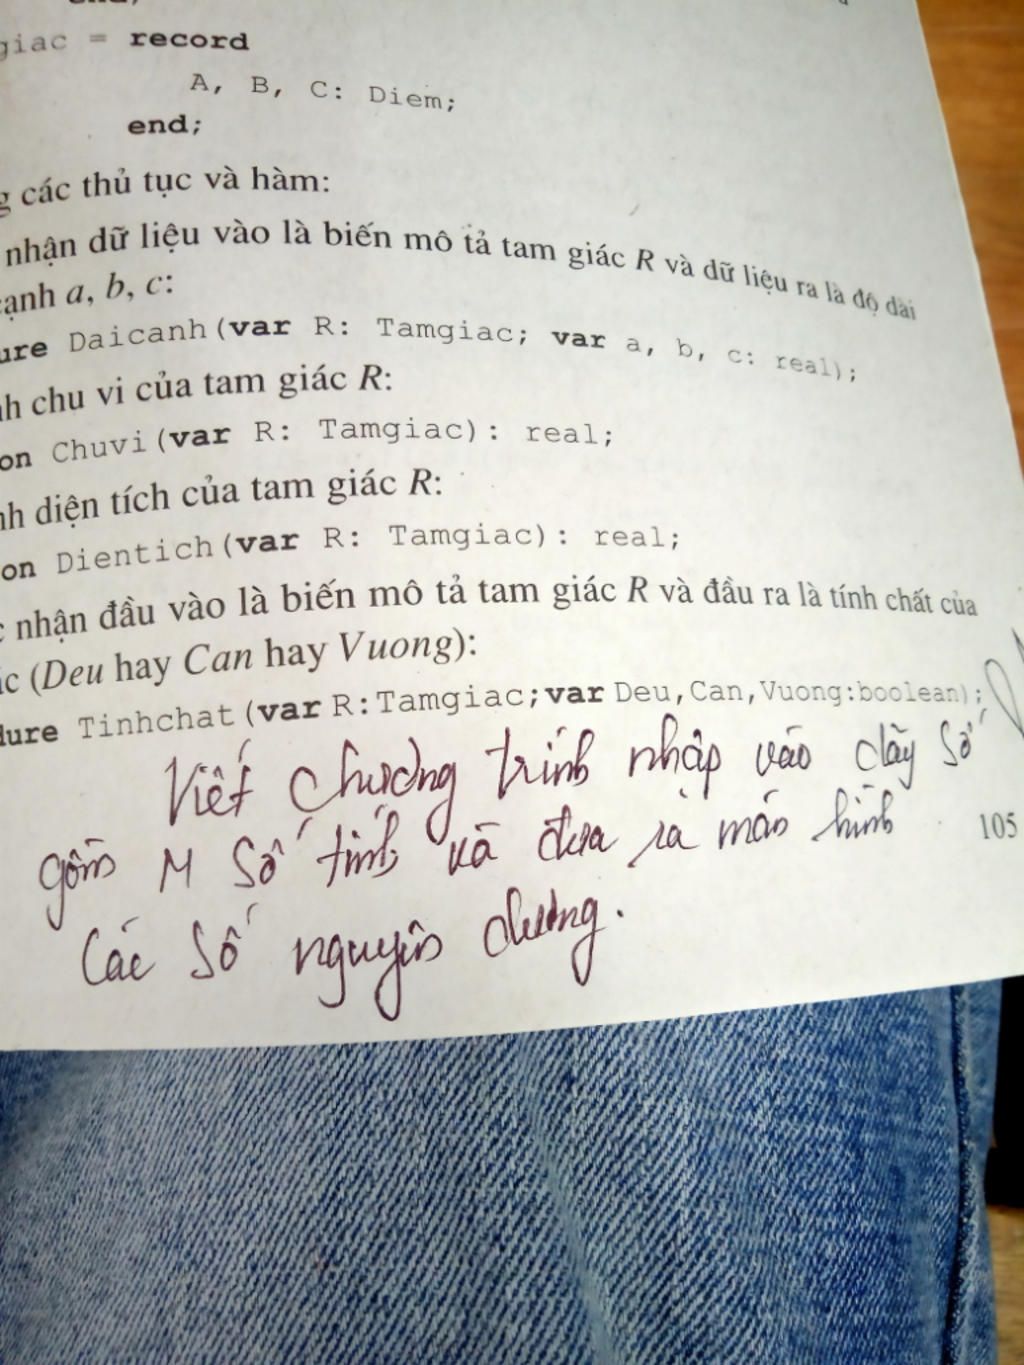 giac = record
A, B, C: Diem;
end;
các thủ tục và hàm:
nhận dữ liệu vào là biến mô tả tam giác R và dữ liệu ra là độ dài
cạnh a, b, c:
Daicanh(var R: Tamgiac; var a, b, c: real);
chu vi của tam giác R:
Chuvi(var R: Tamgiac): real;
diện tích của tam giác R:
Dientich(var R: Tamgiac): real;
nhận đầu vào là biến mô tả tam giác R và đầu ra là tính chất của
(Deu hay Can hay Vuong):
Tinhchat(var R:Tamgiac;var Deu,Can,Vuong:boolean);
Viết chương trình nhập vào dãy số
gồm M số tính và đưa ra màn hình
105
Các số nguyên dương.